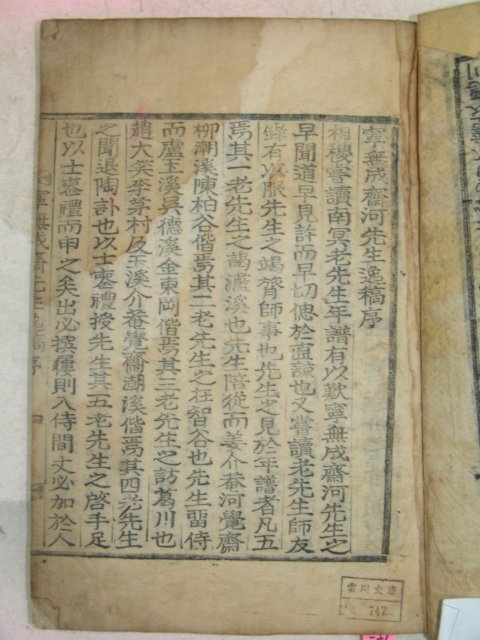 寧無成齋河先生逸稿序
相稷嘗讀南冥老先生年譜有以歎寧無成齋河先生之
早聞道早見許而早切偲於直諒也又嘗讀老先生師友
錄有以服先生之竭誠師事也先生之見於年譜者凡五
焉其一老先生之謁濂溪也先生陪從而姜介菴河覺齋
柳潮溪陳栢谷偕焉其二老先生之在智谷也先生畱侍
而盧玉溪吳德溪金東岡偕焉其三老先生之訪葛川也
趙大笑李茅村及玉溪介菴覺齋潮溪偕焉其四老先生
之聞退陶訃也以士喪禮授先生其五老先生之啓手足
也以士喪禮而申之矣出必撰屨則入侍間丈必加於人
寧無成齋先生逸稿序
雲川文庫
747